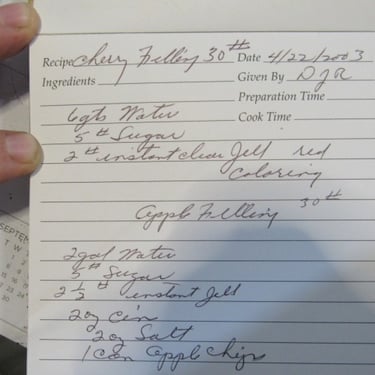 Recipe Cherry Filling 30# Date 4/22/2003
Ingredients Given By DJR
Preparation Time
6qts Water Cook Time
5# Sugar
2# instant clear Jell red
Coloring
Apple Filling 30#
2gal Water
5# Sugar
2 1/2 # instant Jell
2oz Cin
2oz Salt
1 Can Apple Chips
SEPTEM
T W